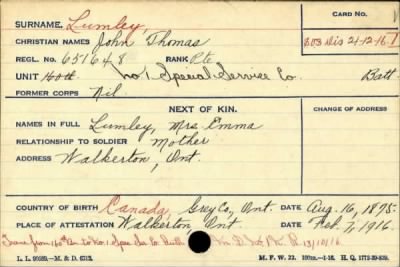 SURNAME. Lumley
CARD NO.
CHRISTIAN NAMES John Thomas
SOS Dis 21-12-16
REGL. NO. 651648 RANK Pte
UNIT 160th No. 1 Special Service Co. Batt
FORMER CORPS Nil.
NEXT OF KIN.
CHANGE OF ADDRESS
NAMES IN FULL Lumley, Mrs. Emma
RELATIONSHIP TO SOLDIER Mother
ADDRESS Walkerton, Ont.
COUNTRY OF BIRTH Canada, Grey Co, Ont. DATE Aug. 16, 1895.
PLACE OF ATTESTATION Walkerton, Ont DATE Feb. 7, 1916.
Trans from 160th Bn to No. 1 Spec Ser. Co. 13/10/16
M. F. W. 22. H. Q. 1772-39-839.